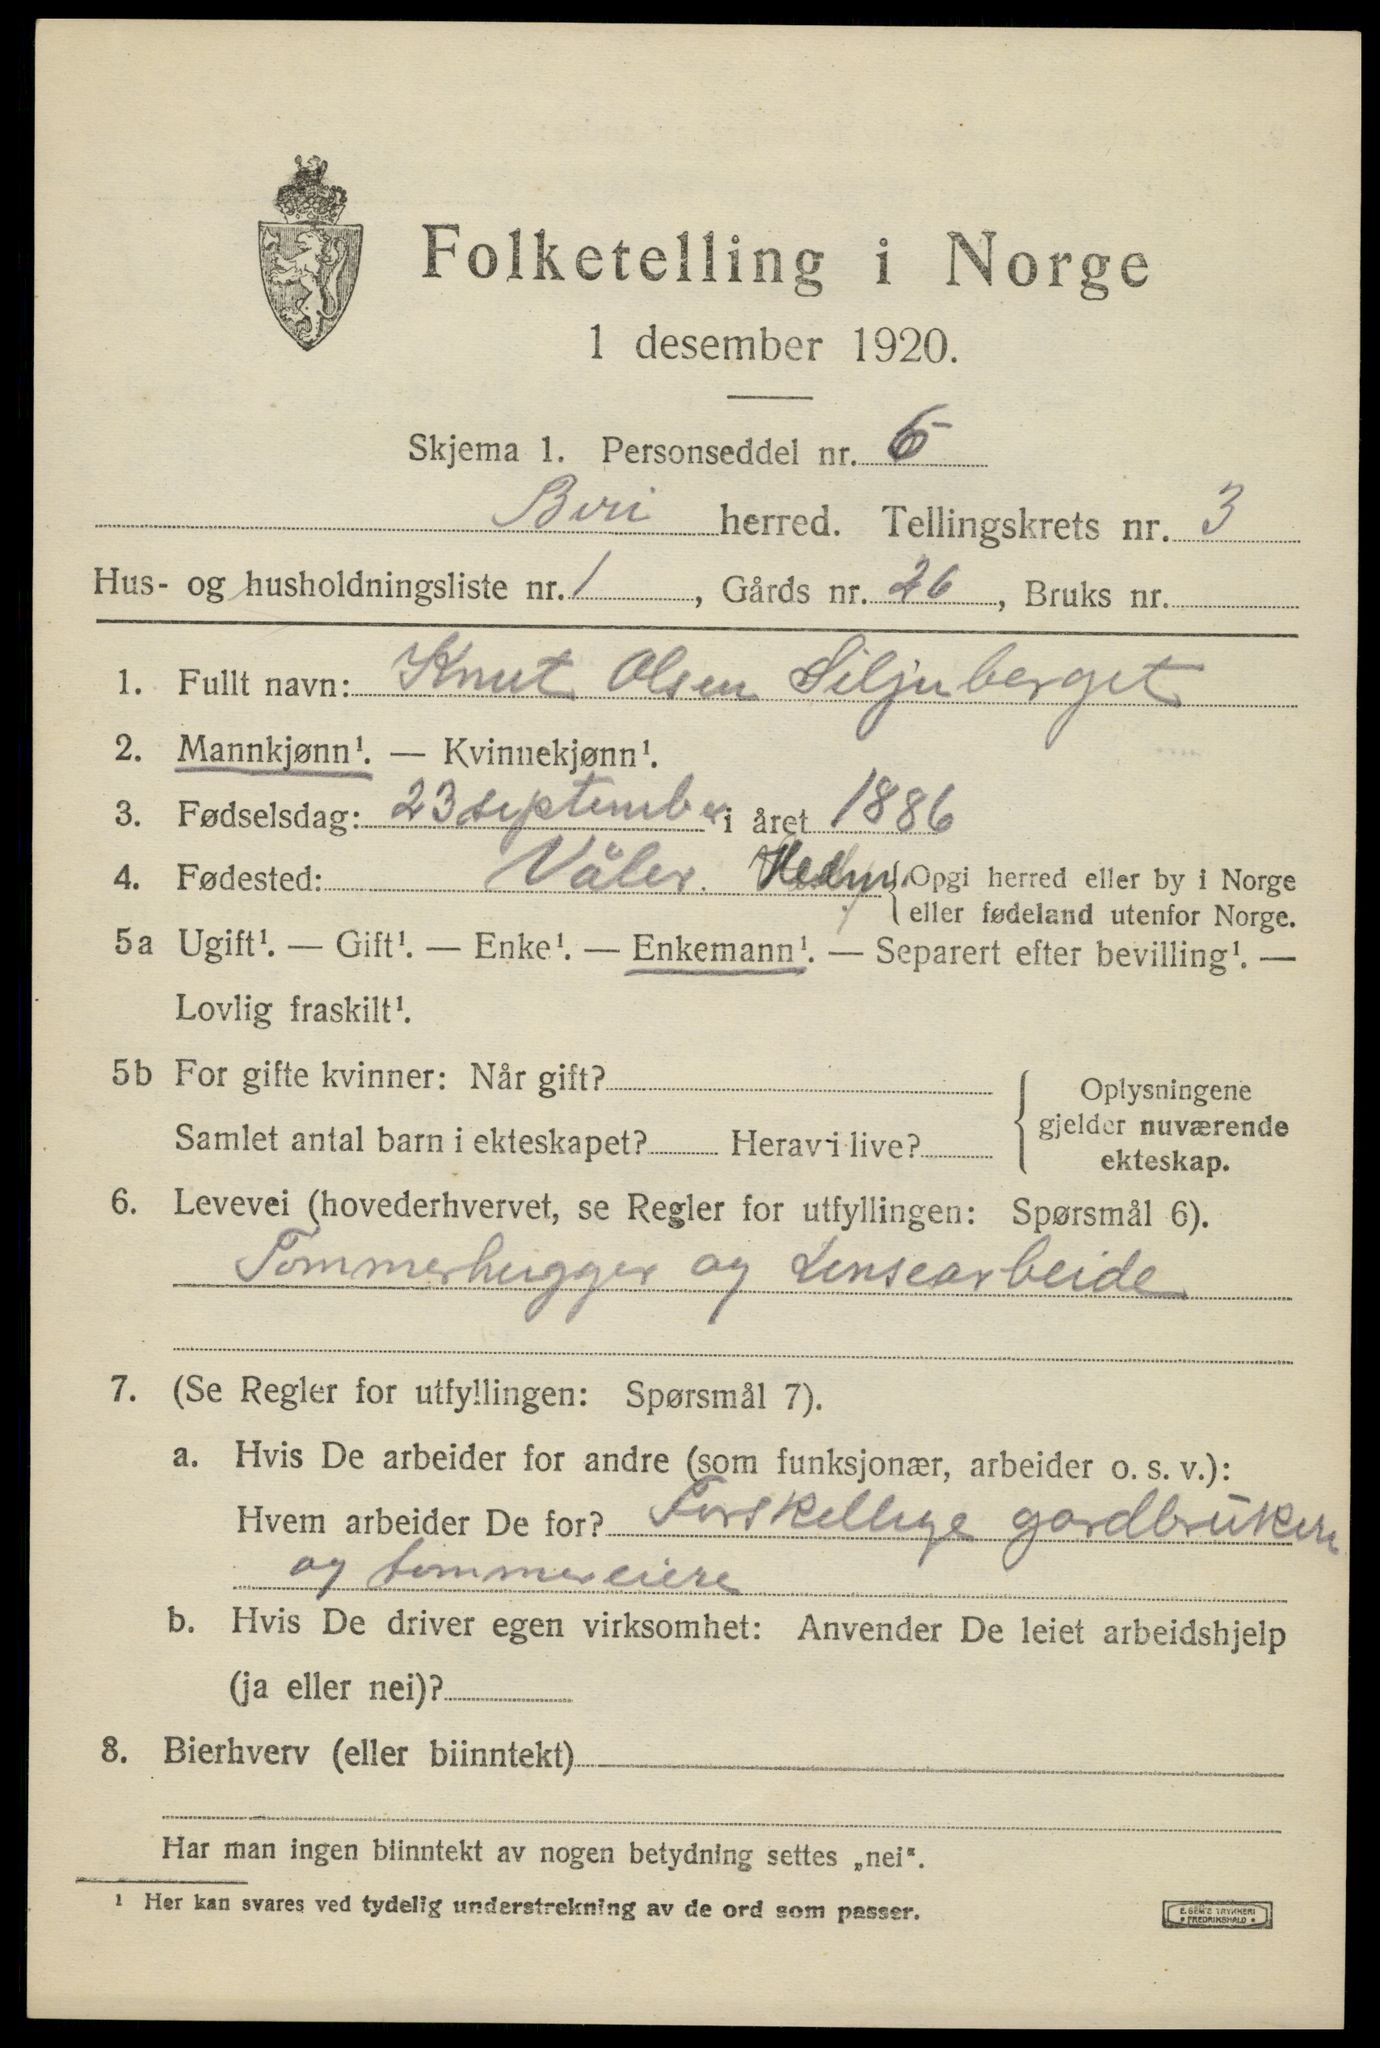 Folketelling i Norge
1 desember 1920.
Skjema 1. Personseddel nr. 6
Biri herred. Tellingskrets nr. 3
Hus- og husholdningsliste nr. 1, Gårds nr. 26, Bruks nr.
1. Fullt navn: Knut Olsen Siljuberget
2. Mannkjønn¹. — Kvinnekjønn¹.
3. Fødselsdag: 23 september i året 1886
4. Fødested: Våler. Hedm. Opgi herred eller by i Norge
eller fødeland utenfor Norge.
5a Ugift¹. — Gift¹. — Enke¹. — Enkemann¹. — Separert efter bevilling¹. —
Lovlig fraskilt¹.
5b For gifte kvinner: Når gift?
Samlet antal barn i ekteskapet? Herav i live?
Oplysningene
gjelder nuværende
ekteskap.
6. Levevei (hovederhvervet, se Regler for utfyllingen: Spørsmål 6).
Tommerhugger og Lensearbeide
7. (Se Regler for utfyllingen: Spørsmål 7).
a. Hvis De arbeider for andre (som funksjonær, arbeider o. s. v.):
Hvem arbeider De for? Forskellige gardbrukere
og tommereiere
b. Hvis De driver egen virksomhet: Anvender De leiet arbeidshjelp
(ja eller nei)?
8. Bierhverv (eller biinntekt)
Har man ingen biinntekt av nogen betydning settes „nei".
¹ Her kan svares ved tydelig understrekning av de ord som passer.
E. SEM'S TRYKKERI
FREDRIKSHALD